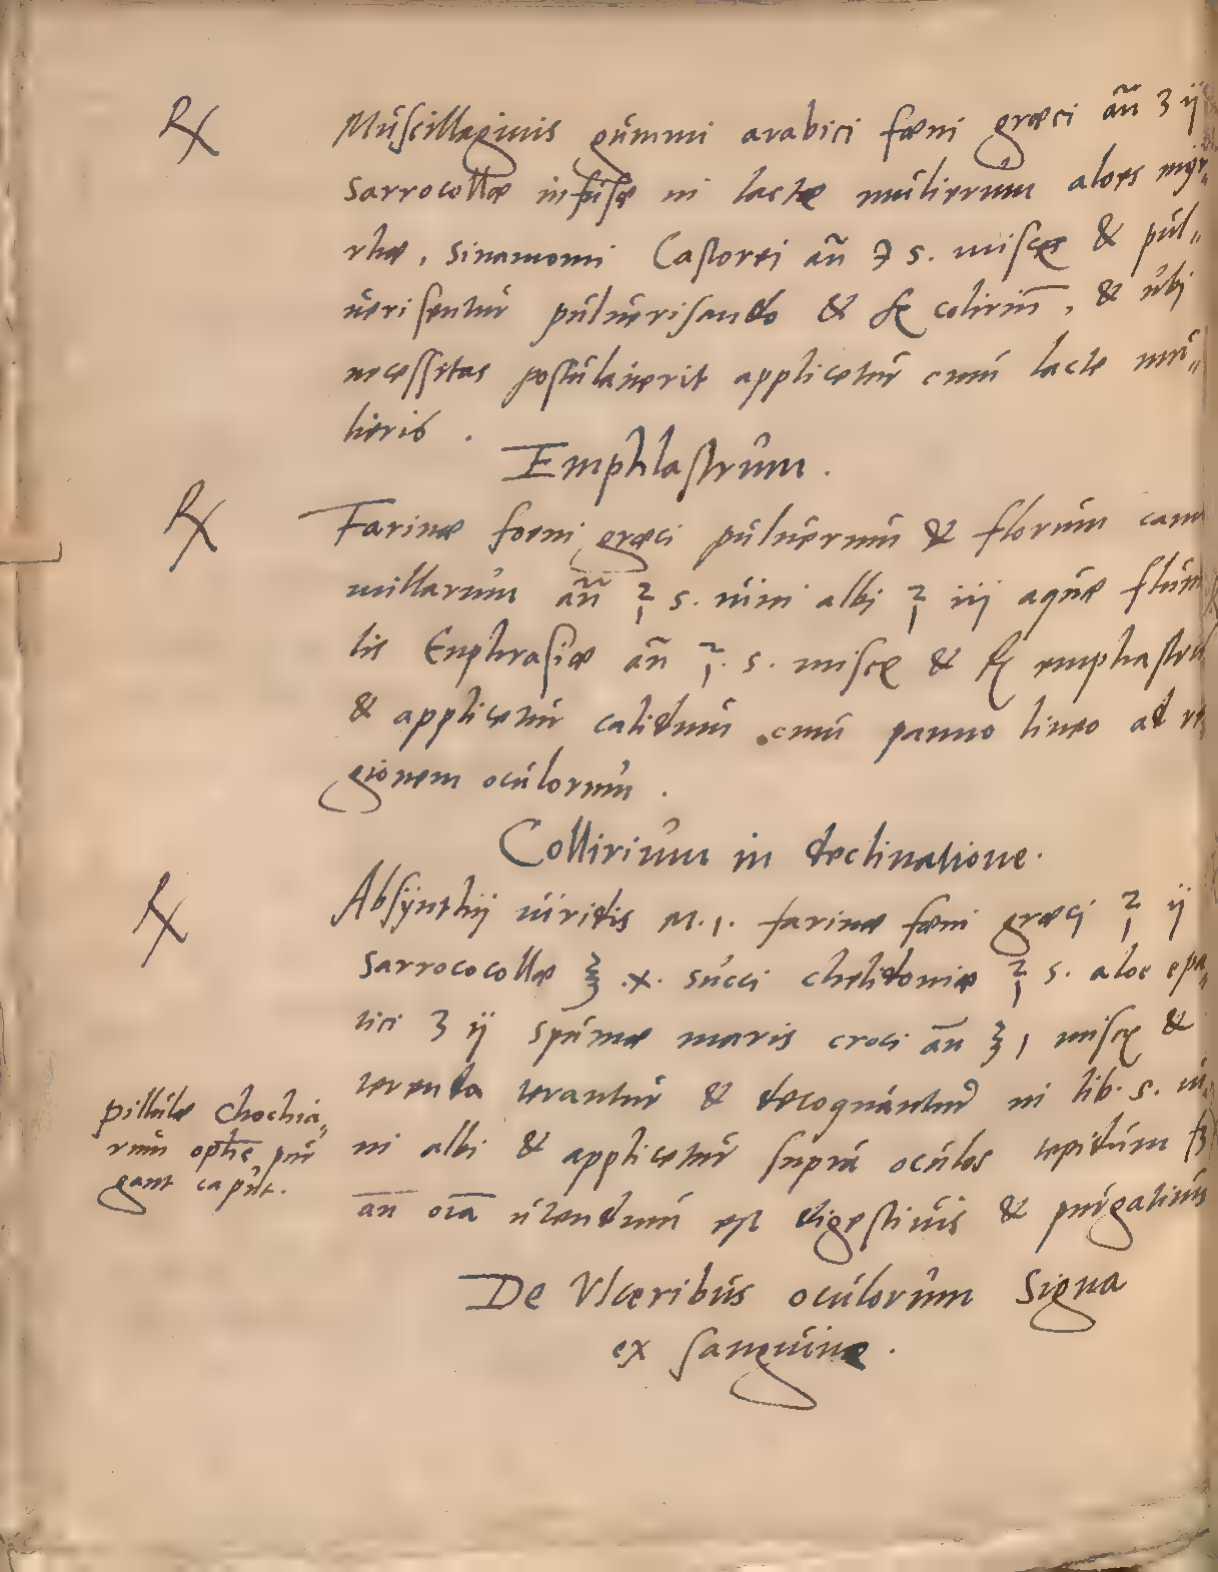 ℞ Muscillaginis gummi arabici fœni græci añ ʒ ij
sarrocollæ infusæ in lacte mulierum aloes myr„
rhæ, sinamomi Castorei añ ℈ s. misce & pul„
uerisentur puluerisando & fᵉ colirium̄, & ubi
necessitas postulauerit applicetur cum lacte mu„
lieris.
Emphlastrum.
℞ Farinæ foeni græci puluerum & florum camo
millarum añ ℥ s. uini albi ℥ iij aquæ
lis Euphrasiæ añ ℥. s. misce & emphastru
& applicetur calidum cum panno lineo ad re
gionem oculorum.
Collirium in declinatione.
℞ Absynthij uiridis M.1. farinæ fœni græcj ℥ ij
sarrococollæ ʒ .x. succi chelidoniæ ℥ s. aloe epa„
tici ʒ ij spumæ maris croci añ ʒ 1 misce &
terenda terantur & decoquantur in lib. s. ui„
ni albi & applicetur supra oculos tepidum
an̄ oīa utendum est digestiuis & purgatiuis
pillulæ Chochia„
rum optīe pur
gant caput.
De Vlceribus oculorum Signa
ex sanguine.